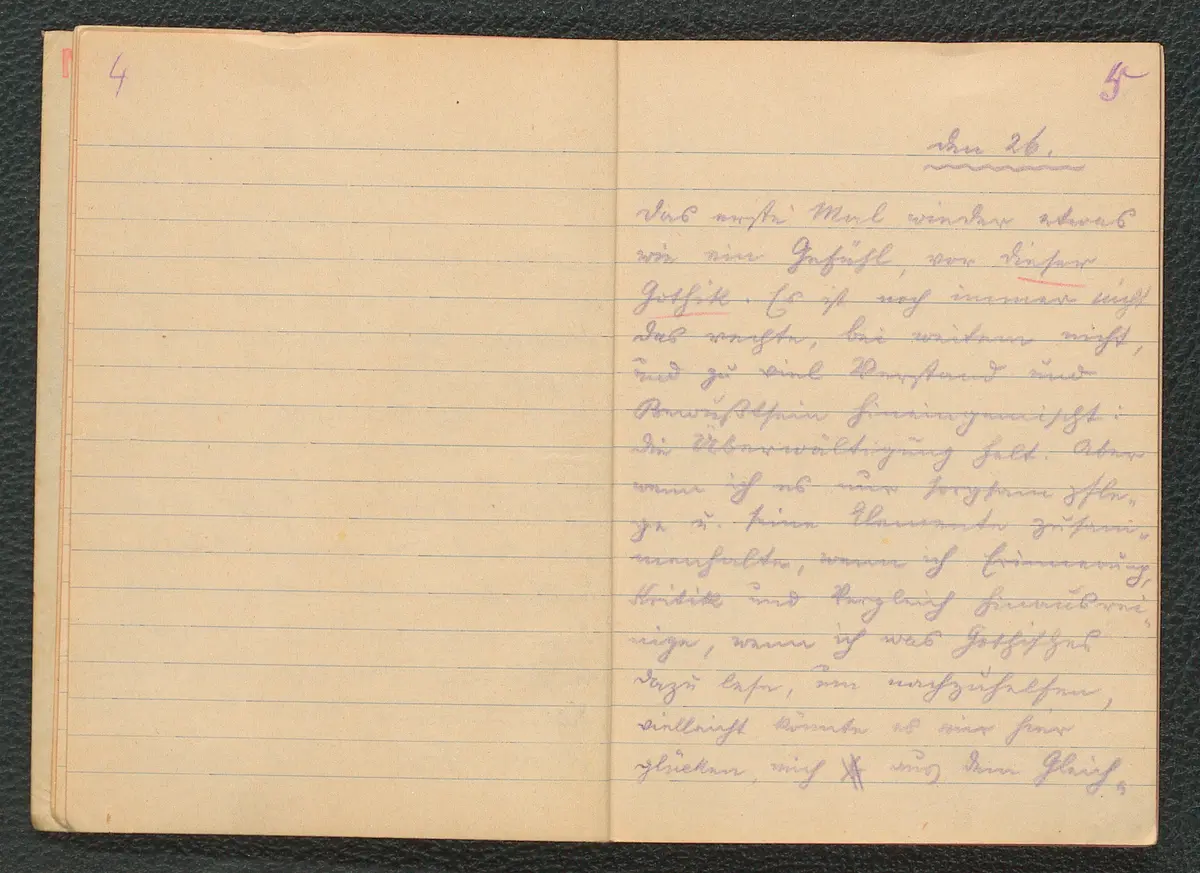 4
5
den 26.
Das erste Mal wieder etwas
wie ein Gefühl, vor dieser
Gothik. Es ist noch immer nicht
das rechte, bei weitem nicht,
und zu viel Verstand und
Bewußtsein hineingemischt:
die Überwältigung fehlt. Aber
wenn ich es nur sorgsam pfle-
ge u. seine Elemente zusam-
menhalte, wenn ich Erinnerung,
Kritik und Vergleich hinausrei-
nige, wenn ich was Gothisches
dazu lese, um nachzuhelfen,
vielleicht könnte es mir hier
glücken, mich aus dem Gleich-